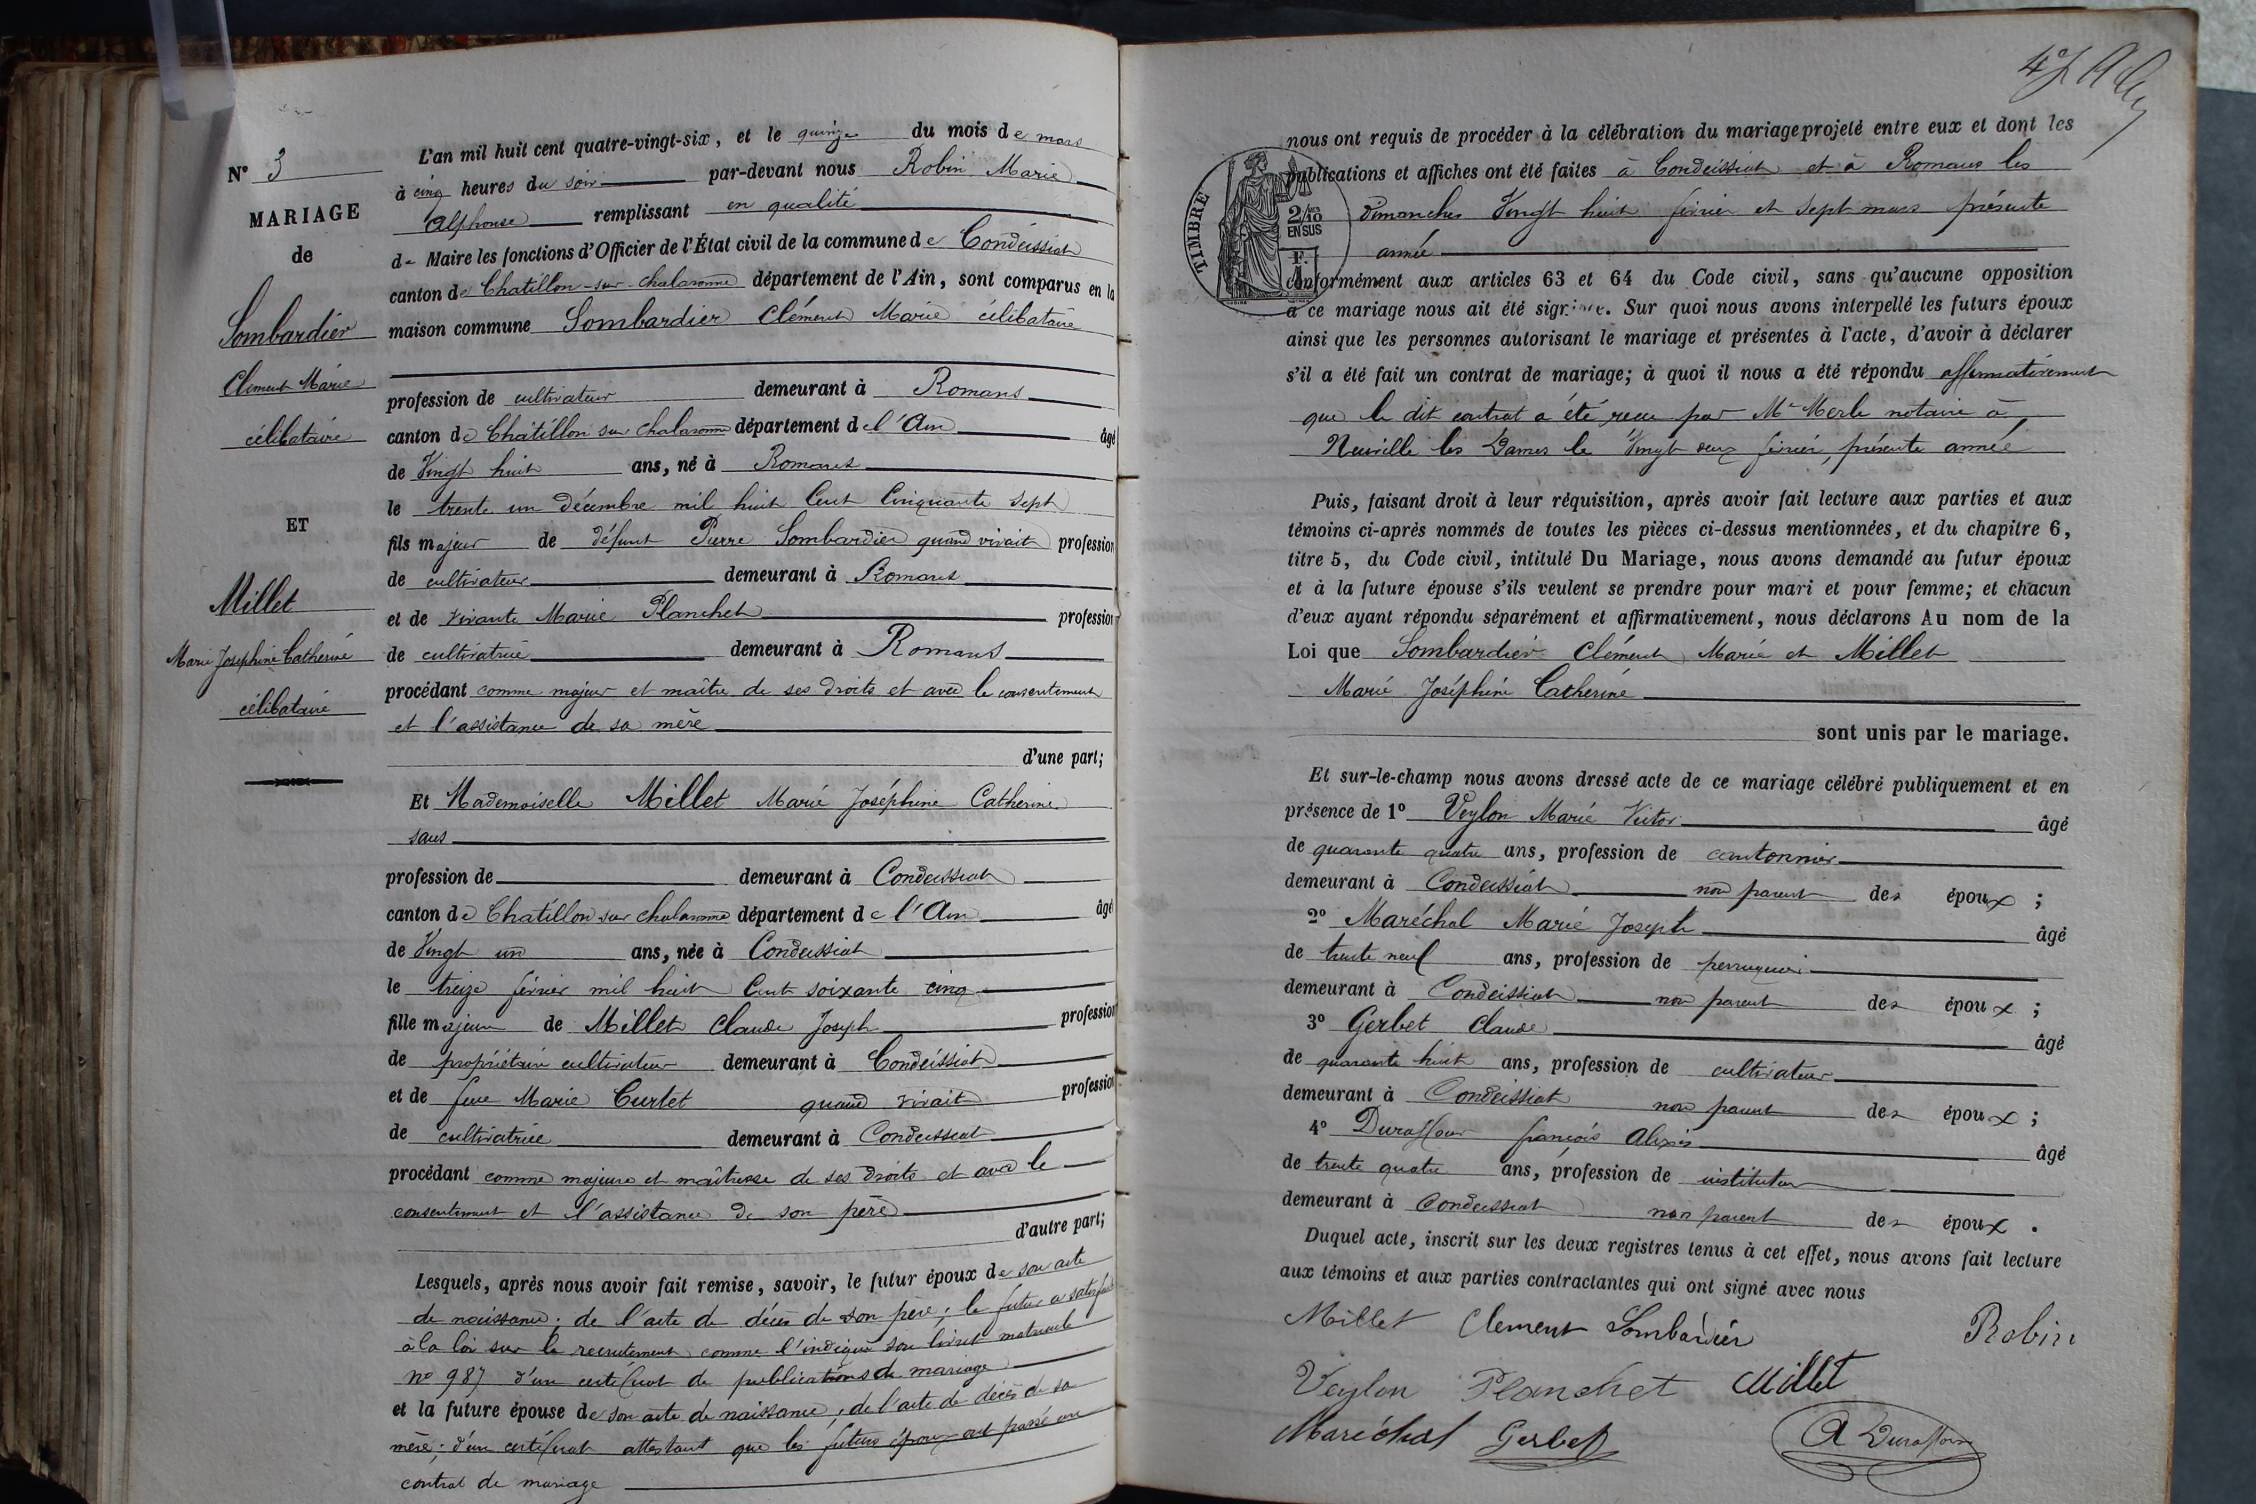 N° 3
MARIAGE
de
Lombardier
Clément Marie
célibataire
ET
Millet
Marie Joséphine Catherine
célibataire
L'an mil huit cent quatre-vingt-six, et le quinze du mois de mars
à cinq heures du soir par-devant nous Robin Marie
Alphonse remplissant en qualité
de Maire les fonctions d'Officier de l'État civil de la commune de Condeissiat
canton de Chatillon-sur-Chalaronne département de l'Ain, sont comparus en la
maison commune Lombardier Clément Marie célibataire
profession de cultivateur demeurant à Romans
canton de Chatillon sur Chalaronne département de l'Ain âgé
de Vingt huit ans, né à Romans
le trente un décembre mil huit Cent Cinquante sept
fils majeur de défunt Pierre Lombardier quand vivait profession
de cultivateur demeurant à Romans
et de vivante Marie Planchet profession
de cultivatrice demeurant à Romans
procédant comme majeur et maître de ses droits et avec le consentement
et l'assistance de sa mère
d'une part;
Et Mademoiselle Millet Marie Joséphine Catherine
sans
profession de demeurant à Condeissiat
canton de Chatillon sur Chalaronne département de l'Ain âgé
de Vingt un ans, née à Condeissiat
le treize février mil huit Cent soixante cinq
fille majeure de Millet Claude Joseph profession
de propriétaire cultivateur demeurant à Condeissiat
et de feue Marie Curtet quand vivait profession
de cultivatrice demeurant à Condeissiat
procédant comme majeure et maîtresse de ses droits et avec le
consentement et l'assistance de son père
d'autre part;
Lesquels, après nous avoir fait remise, savoir, le futur époux de son acte
de naissance; de l'acte de décès de son père; le futur a satisfait
à la loi sur le recrutement comme l'indique son livret matricule
n° 987 d'un certificat de publications de mariage
et la future épouse de son acte de naissance; de l'acte de décès de sa
mère; d'un certificat attestant que les futurs époux ont passé un
contrat de mariage
nous ont requis de procéder à la célébration du mariage projeté entre eux et dont les
publications et affiches ont été faites à Condeissiat et à Romans les
Dimanches Vingt huit février et sept mars présente
année
TIMBRE
2/10 EN SUS
F.
conformément aux articles 63 et 64 du Code civil, sans qu'aucune opposition
à ce mariage nous ait été signifiée. Sur quoi nous avons interpellé les futurs époux
ainsi que les personnes autorisant le mariage et présentes à l'acte, d'avoir à déclarer
s'il a été fait un contrat de mariage; à quoi il nous a été répondu affirmativement
que le dit contrat a été reçu par Me Merle notaire à
Neuville les Dames le Vingt deux février, présente année
Puis, faisant droit à leur réquisition, après avoir fait lecture aux parties et aux
témoins ci-après nommés de toutes les pièces ci-dessus mentionnées, et du chapitre 6,
titre 5, du Code civil, intitulé Du Mariage, nous avons demandé au futur époux
et à la future épouse s'ils veulent se prendre pour mari et pour femme; et chacun
d'eux ayant répondu séparément et affirmativement, nous déclarons Au nom de la
Loi que Lombardier Clément Marie et Millet
Marie Joséphine Catherine
sont unis par le mariage.
Et sur-le-champ nous avons dressé acte de ce mariage célébré publiquement et en
présence de 1° Veylon Marie Victor âgé
de quarante quatre ans, profession de cantonnier
demeurant à Condeissiat non parent des époux ;
2° Maréchal Marie Joseph âgé
de trente neuf ans, profession de perruquier
demeurant à Condeissiat non parent des époux ;
3° Gerbet Claude âgé
de quarante huit ans, profession de cultivateur
demeurant à Condeissiat non parent des époux ;
4° Duraffour françois Alexis âgé
de trente quatre ans, profession de instituteur
demeurant à Condeissiat non parent des époux .
Duquel acte, inscrit sur les deux registres tenus à cet effet, nous avons fait lecture
aux témoins et aux parties contractantes qui ont signé avec nous
Millet Clement Lombardier Robin
Veylon Planchet Millet
Maréchal Gerbet A Duraffour